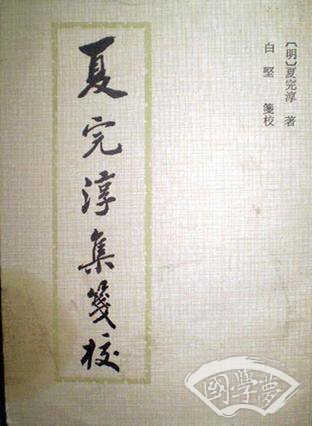 〔明〕夏完淳 著
白堅 箋校
夏完淳集箋校
國學夢